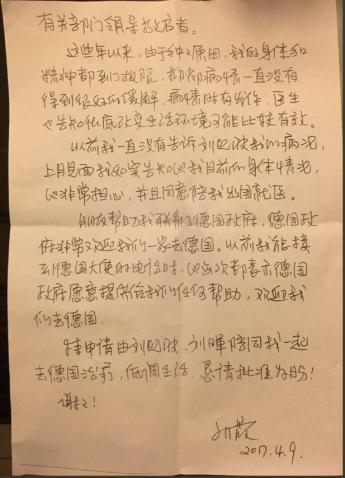 有关部门领导敬启者。
这些年以来，由于种种原因，我的身体和
精神都到了极限，抑郁病情一直没有
得到很好的缓解，病情时有发作，医生
也告知彻底改变生活环境可能比较有效。
以前我一直没有告诉刘晓波我的病况，
上月见面我如实告知他我目前的身体情况，
他非常担心，并且同意陪我出国就医。
朋友帮助我联系了德国政府，德国政
府非常欢迎我们一家去德国。以前我能接
到德国大使的电话时，他每次都表示德国
政府愿意提供给我们任何帮助，欢迎我
们去德国。
特申请由刘晓波、刘晖陪同我一起
去德国治疗，低调生活。恳请批准为盼！
谢谢！
刘霞
2017.4.9.